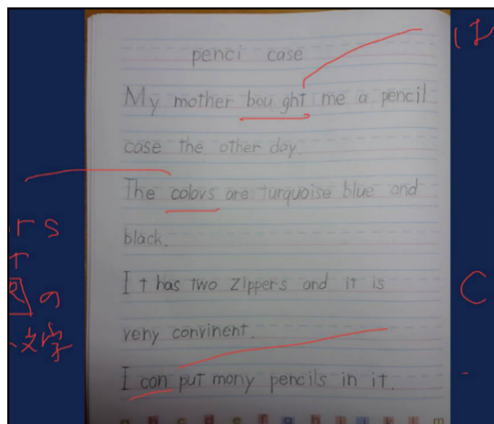 penci case
My mother bought me a pencil
case the other day.
The colors are turquoise blue and
black.
It has two zippers and it is
veny convinent.
I can put many pencils in it.
rs
の
小文字
C
は